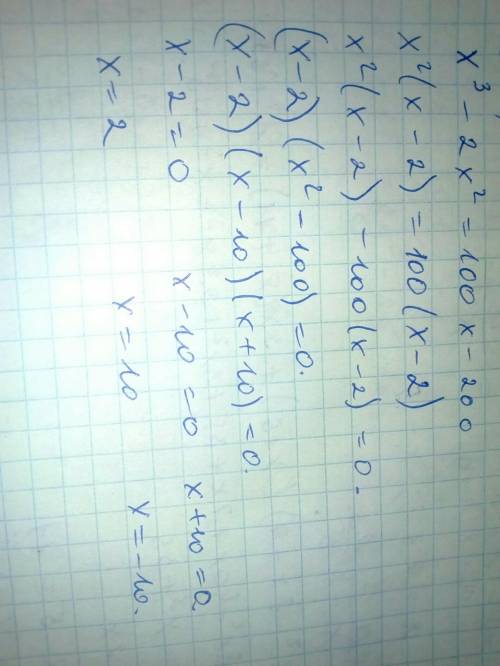 x³ - 2x² = 100x - 200
x²(x - 2) = 100(x - 2)
x²(x - 2) - 100(x - 2) = 0.
(x - 2)(x² - 100) = 0.
(x - 2)(x - 10)(x + 10) = 0.
x - 2 = 0 x - 10 = 0 x + 10 = 0
x = 2 x = 10 x = -10.